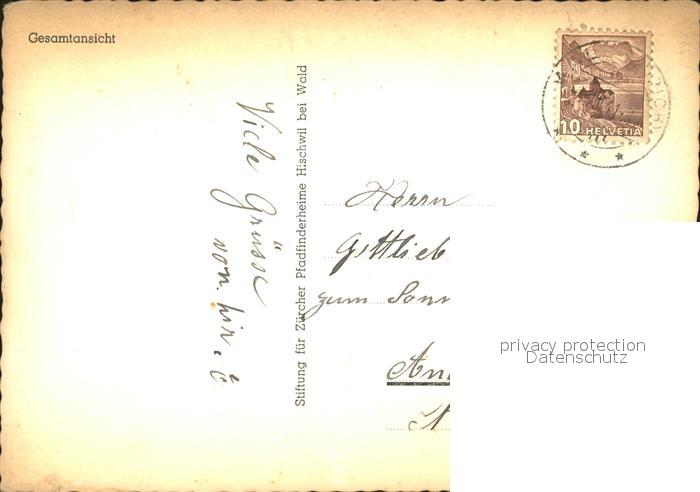 Gesamtansicht
Stiftung für Zürcher Pfadfinderheime Hischwil bei Wald
Viele Grüsse
von
10 HELVETIA
Herrn
Gottlieb
zum Sonn
An
privacy protection
Datenschutz